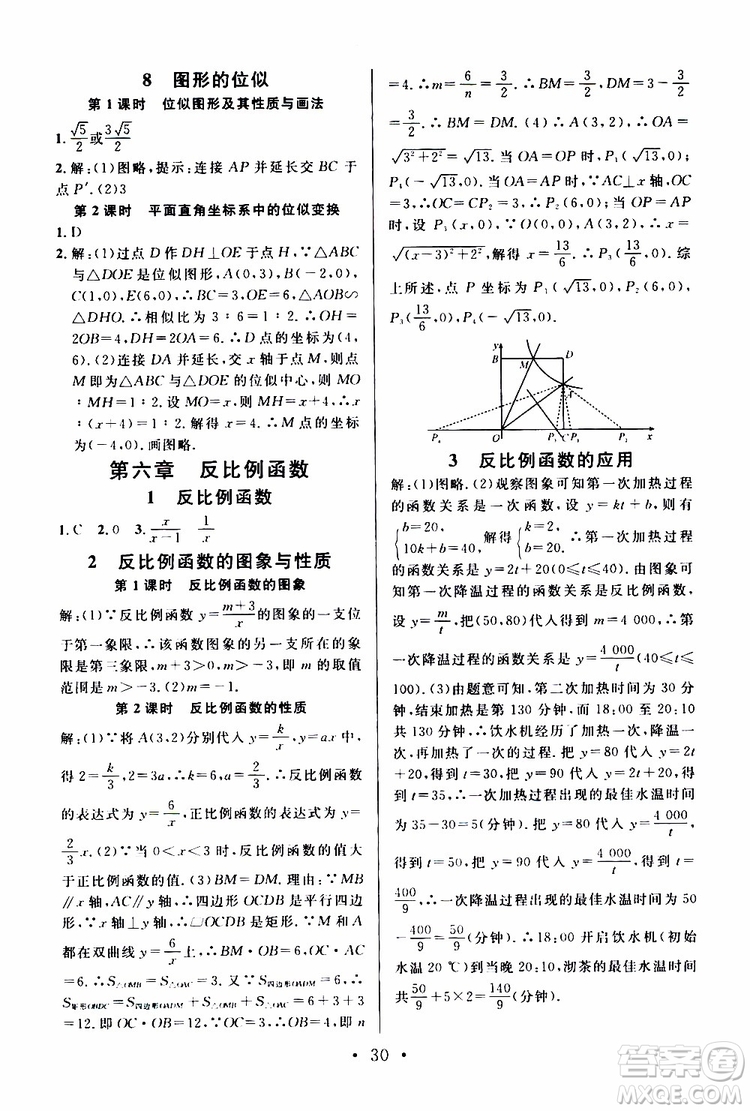 8 图形的位似
第1课时 位似图形及其性质与画法
1. √5/2或3√5/2
2.解:(1)图略,提示:连接 AP 并延长交 BC 于
点 P′.(2)3
第2课时 平面直角坐标系中的位似变换
1.D
2.解:(1)过点 D 作 DH⊥OE 于点 H.∵△ABC
与△DOE 是位似图形,A(0,3),B(-2,0),
C(1,0),E(6,0),∴BC=3,OE=6.△ABC∽
△DHO.∴相似比为 3∶6=1∶2.∴OH=
2OB=4,DH=2OA=6.∴D 点的坐标为(4,
6).(2)连接 DA 并延长,交 x 轴于点 M,则点
M 即为△ABC 与△DOE 的位似中心,则 MO
∶MH=1∶2.设 MO=x,则 MH=x+4,x
∶(x+4)=1∶2.解得 x=4.∴M 点的坐标
为(-4,0).画图略.
第六章 反比例函数
1 反比例函数
1.C 2.0 3. x/(x-1) 1/x
2 反比例函数的图象与性质
第1课时 反比例函数的图象
解:(1)∵反比例函数 y=(m+3)/x 的图象的一支位
于第一象限,∴该函数图象的另一支位于第三象
限是m+3>0,解得 m>-3,即 m 的取值
范围是 m>-3.(2)6
第2课时 反比例函数的性质
解:(1)∵将 A(3,2)分别代入 y=k/x,y=ax,
得 2=k/3,2=3a.∴k=6,a=2/3.∴反比例函数
的表达式为 y=6/x,正比例函数的表达式为 y=
2/3 x.(2)∵当 0<x<3 时,反比例函数的值大
于正比例函数的值.(3)BM=DM.理由:∵MB
∥x 轴,AC∥y 轴,∴四边形 OCDB 是平行四边
形.∵x 轴⊥y 轴,∴▱OCDB 是矩形.∵M 和 A
都在双曲线 y=6/x 上,∴BM·OB=6,OC·AC
=6.∴S△OMB=S△OAC=3.又∵S四边形OADM=6,∴
S矩形OBDC=S四边形OADM+S△OMB+S△OAC=6+3+3
=12.即 OC·OB=12.∵OC=3,∴OB=4.即 n
=4.∴m=6/n=3/2.∴MB=3/2,DM=3-3/2
=3/2.∴BM=DM.(4)∵A(3,2),∴OA=
√(3²+2²)=√13.当 OA=OP 时,P₁(√13,0),
P₄(-√13,0).当 OA=AP 时,∵AC⊥x 轴,OC
=3,∴OC=CP₂=3,∴P₂(6,0).当 OP=AP
时,设 P₃(x,0),∵A(3,2),∴x=
√((x-3)²+2²),解得 x=13/6,∴P₃(13/6,0).综
上所述,点 P 坐标为 P₁(√13,0),P₂(6,0),
P₃(13/6,0),P₄(-√13,0).
y
B M D
A
P₄ O P₃ C P₁ P₂ x
3 反比例函数的应用
解:(1)图略.(2)观察图象可知第一次加热过程
的函数关系是一次函数,设 y=kt+b,则根据题
意,得{b=20, 10k+b=40, 解得{k=2, b=20,∴第一次加热过程
的函数关系是 y=2t+20(0≤t≤40).由图象可
知第一次降温过程的函数关系是反比例函数,
设 y=m/t,把(50,80)代入得到 m=4 000,∴第
一次降温过程的函数关系是 y=4 000/t(40≤t≤
100).(3)由题意可知,第二次加热时间为 30 分
钟,结束加热是第 130 分钟.而 18:00 至 20:10
共 130 分钟,∴饮水机经历了一次加热,一次降温一
次,再加热了一次.把 y=90 代入 y=2t+20,
得到 t=35,∴一次加热过程出现的最佳水温时间
为 35-30=5(分钟).把 y=80 代入 y=4 000/t,
得到 t=50,把 y=90 代入 y=4 000/t,得到 t=
400/9,∴一次降温过程出现的最佳水温时间为 50
-400/9=50/9(分钟).∴18:00 开启饮水机(初始
水温 20 ℃)到当晚 20:10,沏茶的最佳水温时间
共:50/9+5×2=140/9(分钟).
·30·
答案圈